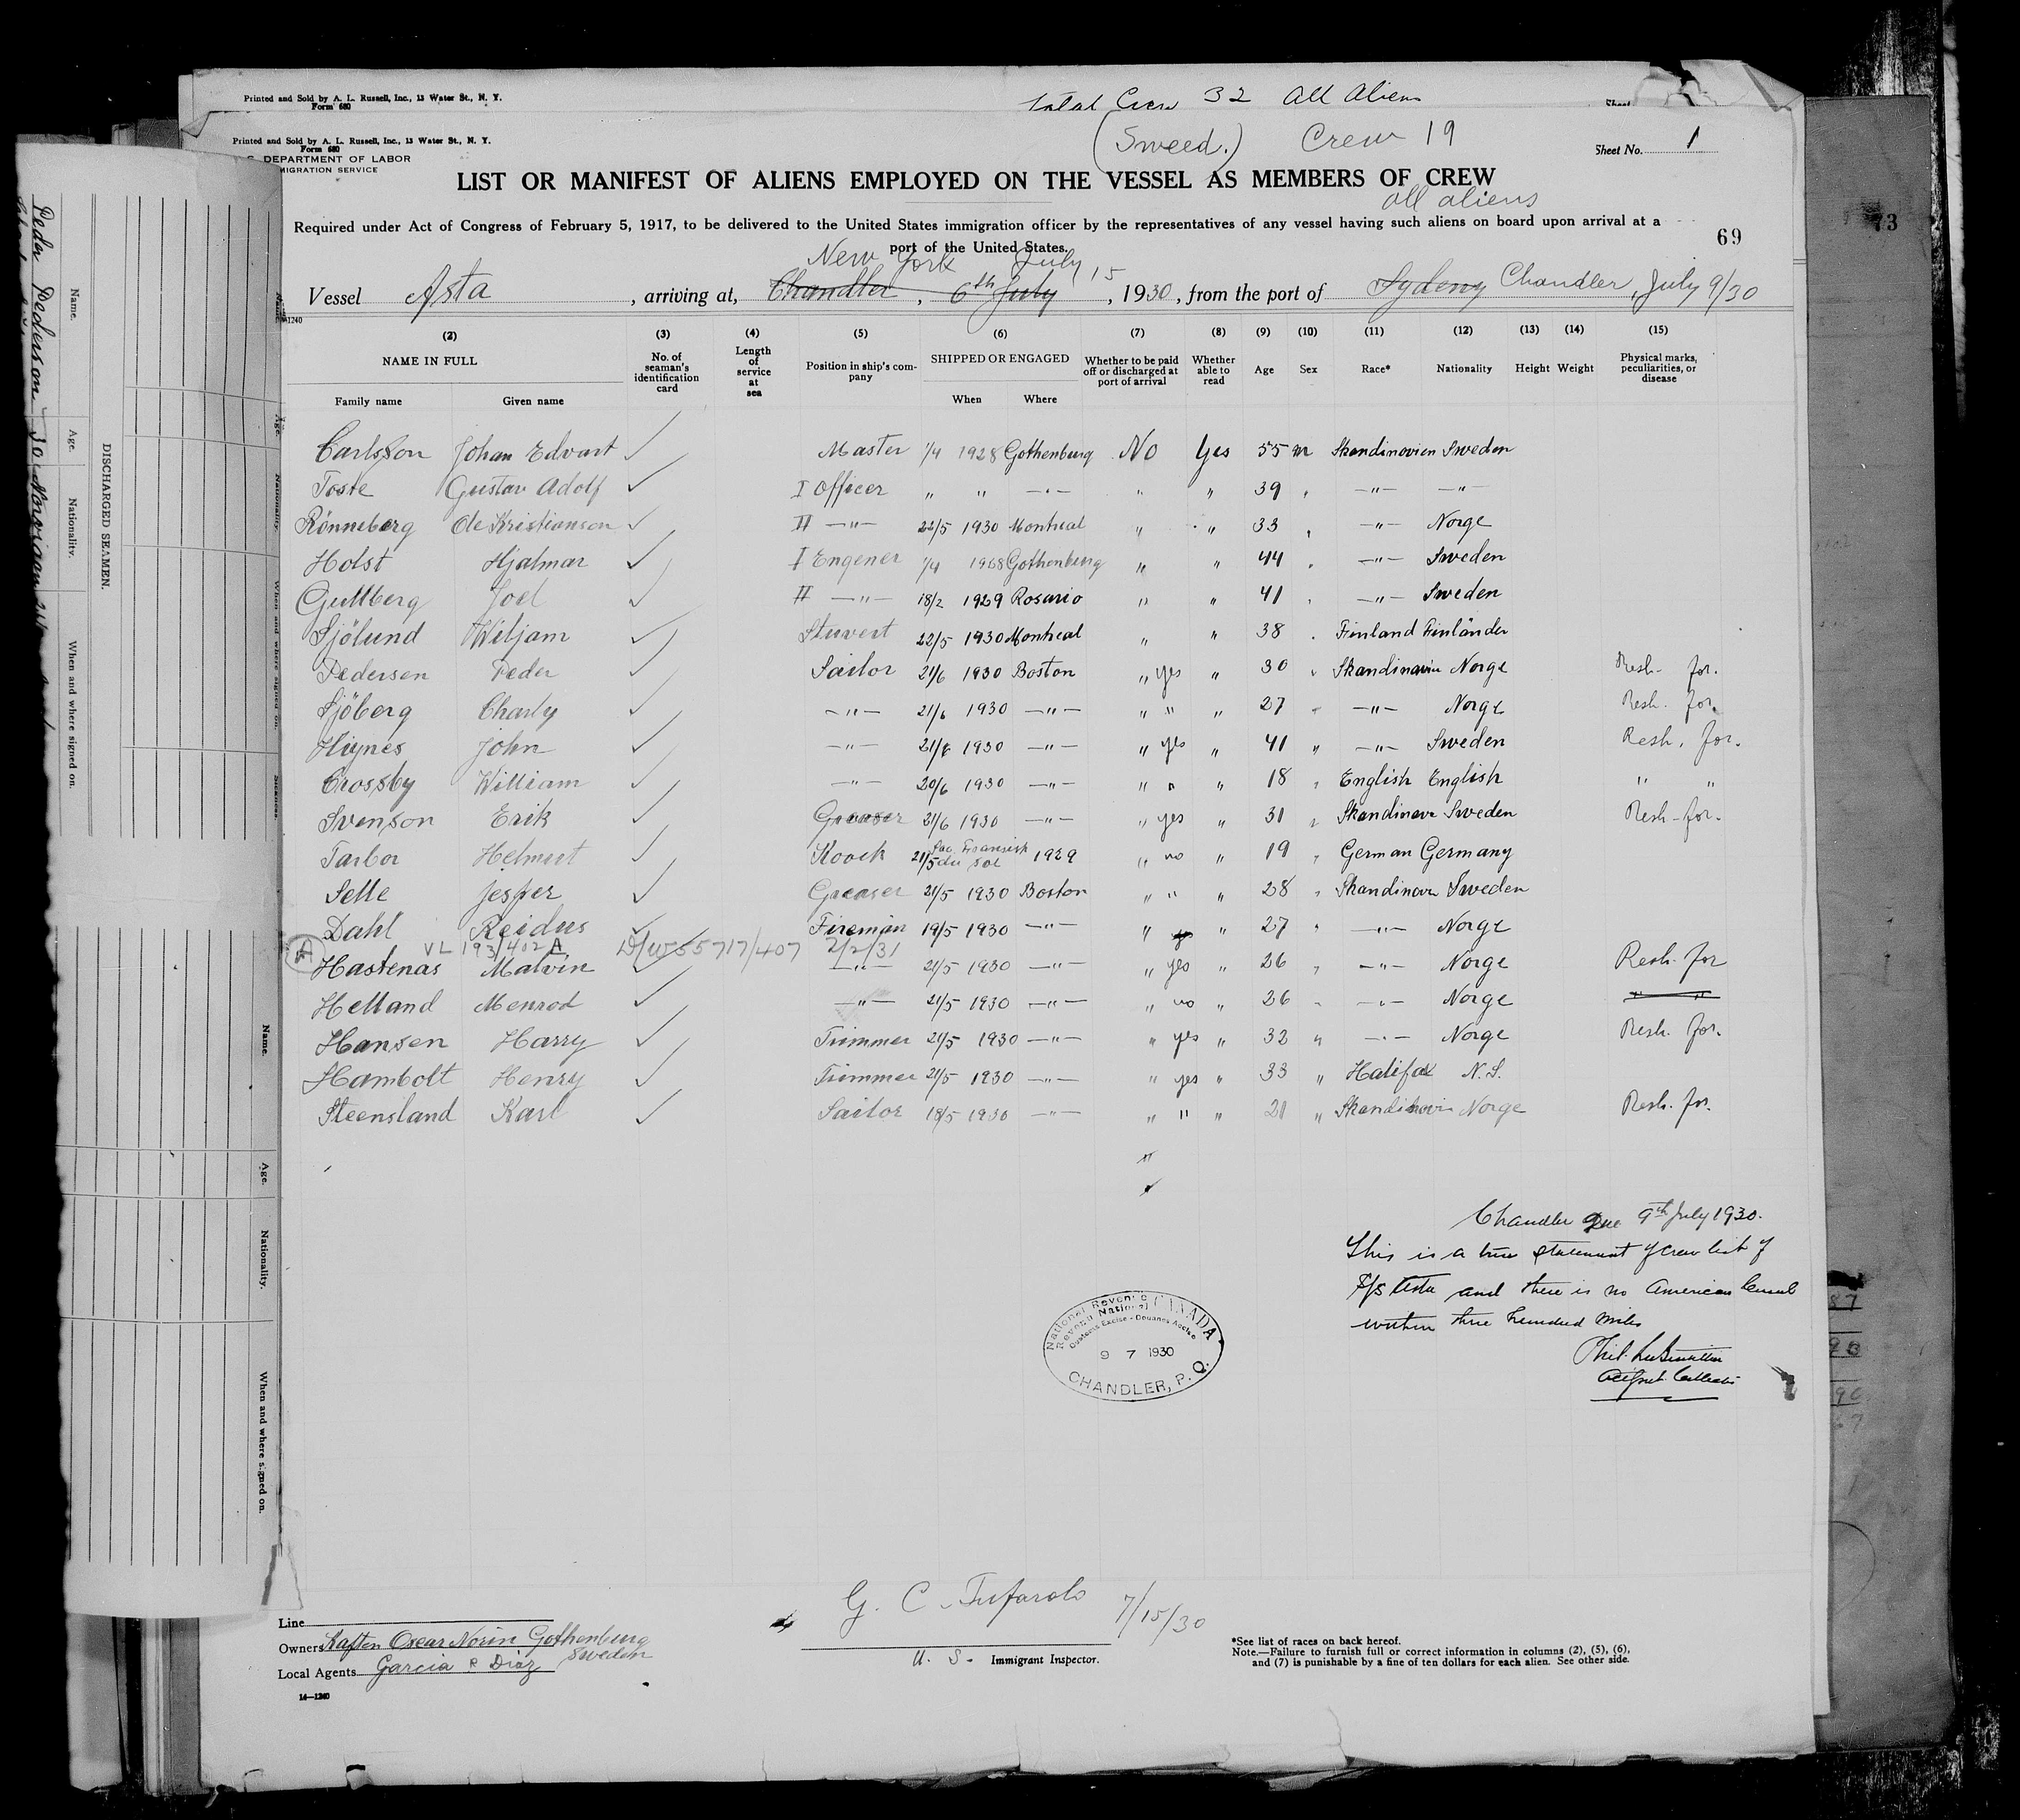 Printed and Sold by A. L. Russell, Inc., 13 Water St., N. Y.
Form 680
Total Crew 32 All Aliens
Sheet
Printed and Sold by A. L. Russell, Inc., 13 Water St., N. Y.
Form 680
(Sweed.) Crew 19
Sheet No. 1
DEPARTMENT OF LABOR
MIGRATION SERVICE
LIST OR MANIFEST OF ALIENS EMPLOYED ON THE VESSEL AS MEMBERS OF CREW
all aliens
Required under Act of Congress of February 5, 1917, to be delivered to the United States immigration officer by the representatives of any vessel having such aliens on board upon arrival at a
port of the United States.
69
New York July 15
Vessel Asta, arriving at, Chandler, 6th July, 1930, from the port of Sydeny Chandler, July 9/30
(2) (3) (4) (5) (6) (7) (8) (9) (10) (11) (12) (13) (14) (15)
NAME IN FULL
Family name Given name
No. of seaman's identification card
Length of service at sea
Position in ship's company
SHIPPED OR ENGAGED
When Where
Whether to be paid off or discharged at port of arrival
Whether able to read
Age Sex Race* Nationality Height Weight
Physical marks, peculiarities, or disease
Carlsson Johan Edvart ✓ Master 1/4 1928 Gothenburg No Yes 55 m Skandinavien Sweden
Toste Gustav Adolf ✓ I Officer " " -"- " " 39 " -"- -"-
Rönneberg Ole Kristianson ✓ II -"- 22/5 1930 Montreal " " 33 " -"- Norge
Holst Hjalmar ✓ I Engener 1/4 1928 Gothenburg " " 44 " -"- Sweden
Gullberg Joel ✓ II -"- 18/2 1929 Rosario " " 41 " -"- Sweden
Sjölund Wiljam ✓ Stuvert 22/5 1930 Montreal " " 38 " Finland Finländer
Pedersen Peder ✓ Sailor 21/6 1930 Boston " yes " 30 " Skandinavin Norge Resh. for.
Sjöberg Charly ✓ -"- 21/6 1930 -"- " " " 27 " -"- Norge Resh. for.
Hiynes John ✓ -"- 21/6 1930 -"- " yes " 41 " -"- Sweden Resh. for.
Crossby William ✓ -"- 20/6 1930 -"- " " " 18 " English English " "
Svenson Erik ✓ Greaser 21/6 1930 -"- " yes " 31 " Skandinave Sweden Resh-for.
Tarbor Helmut ✓ Koock 21/5 Sao Fransisk du Sol 1929 " no " 19 " German Germany
Selle Jesper ✓ Greaser 21/5 1930 Boston " " " 28 " Skandinave Sweden
Dahl Reidus ✓ Fireman 19/5 1930 -"- " " 27 " -"- Norge
(A) VL 193/402 A 55717/407 2/2/31
Hastenas Malvin ✓ -"- 21/5 1930 -"- " yes " 26 " -"- Norge Resh. for
Helland Menrod ✓ -"- 21/5 1930 -"- " no " 26 " -"- Norge " "
Hansen Harry ✓ Trimmer 21/5 1930 -"- " yes " 32 " -"- Norge Resh. for.
Hambolt Henry ✓ Trimmer 21/5 1930 -"- " yes " 33 " Halifax N.S.
Steensland Karl ✓ Sailor 18/5 1930 -"- " " " 21 " Skandinavi Norge Resh. for.
Chandler Que 9th July 1930.
This is a true statement of crew list of
S/S Asta and there is no American Consul
within three hundred miles
National Revenue CANADA
Revenu National
Customs Excise - Douanes Accise
9 7 1930
CHANDLER, P. Q.
Line
Owners Kapten Oscar Norin Gothenburg Sweden
Local Agents Garcia & Diaz
14—1240
G. C. Tufarolo 7/15/30
U. S. Immigrant Inspector.
*See list of races on back hereof.
Note.—Failure to furnish full or correct information in columns (2), (5), (6),
and (7) is punishable by a fine of ten dollars for each alien. See other side.
Peder Pederson 30 Norvigian
Name. Age. Nationality. When and where signed on.
DISCHARGED SEAMEN.
Age. Nationality. When and where signed on. Sickness.
Name. Age. Nationality. When and where signed on.
73
87